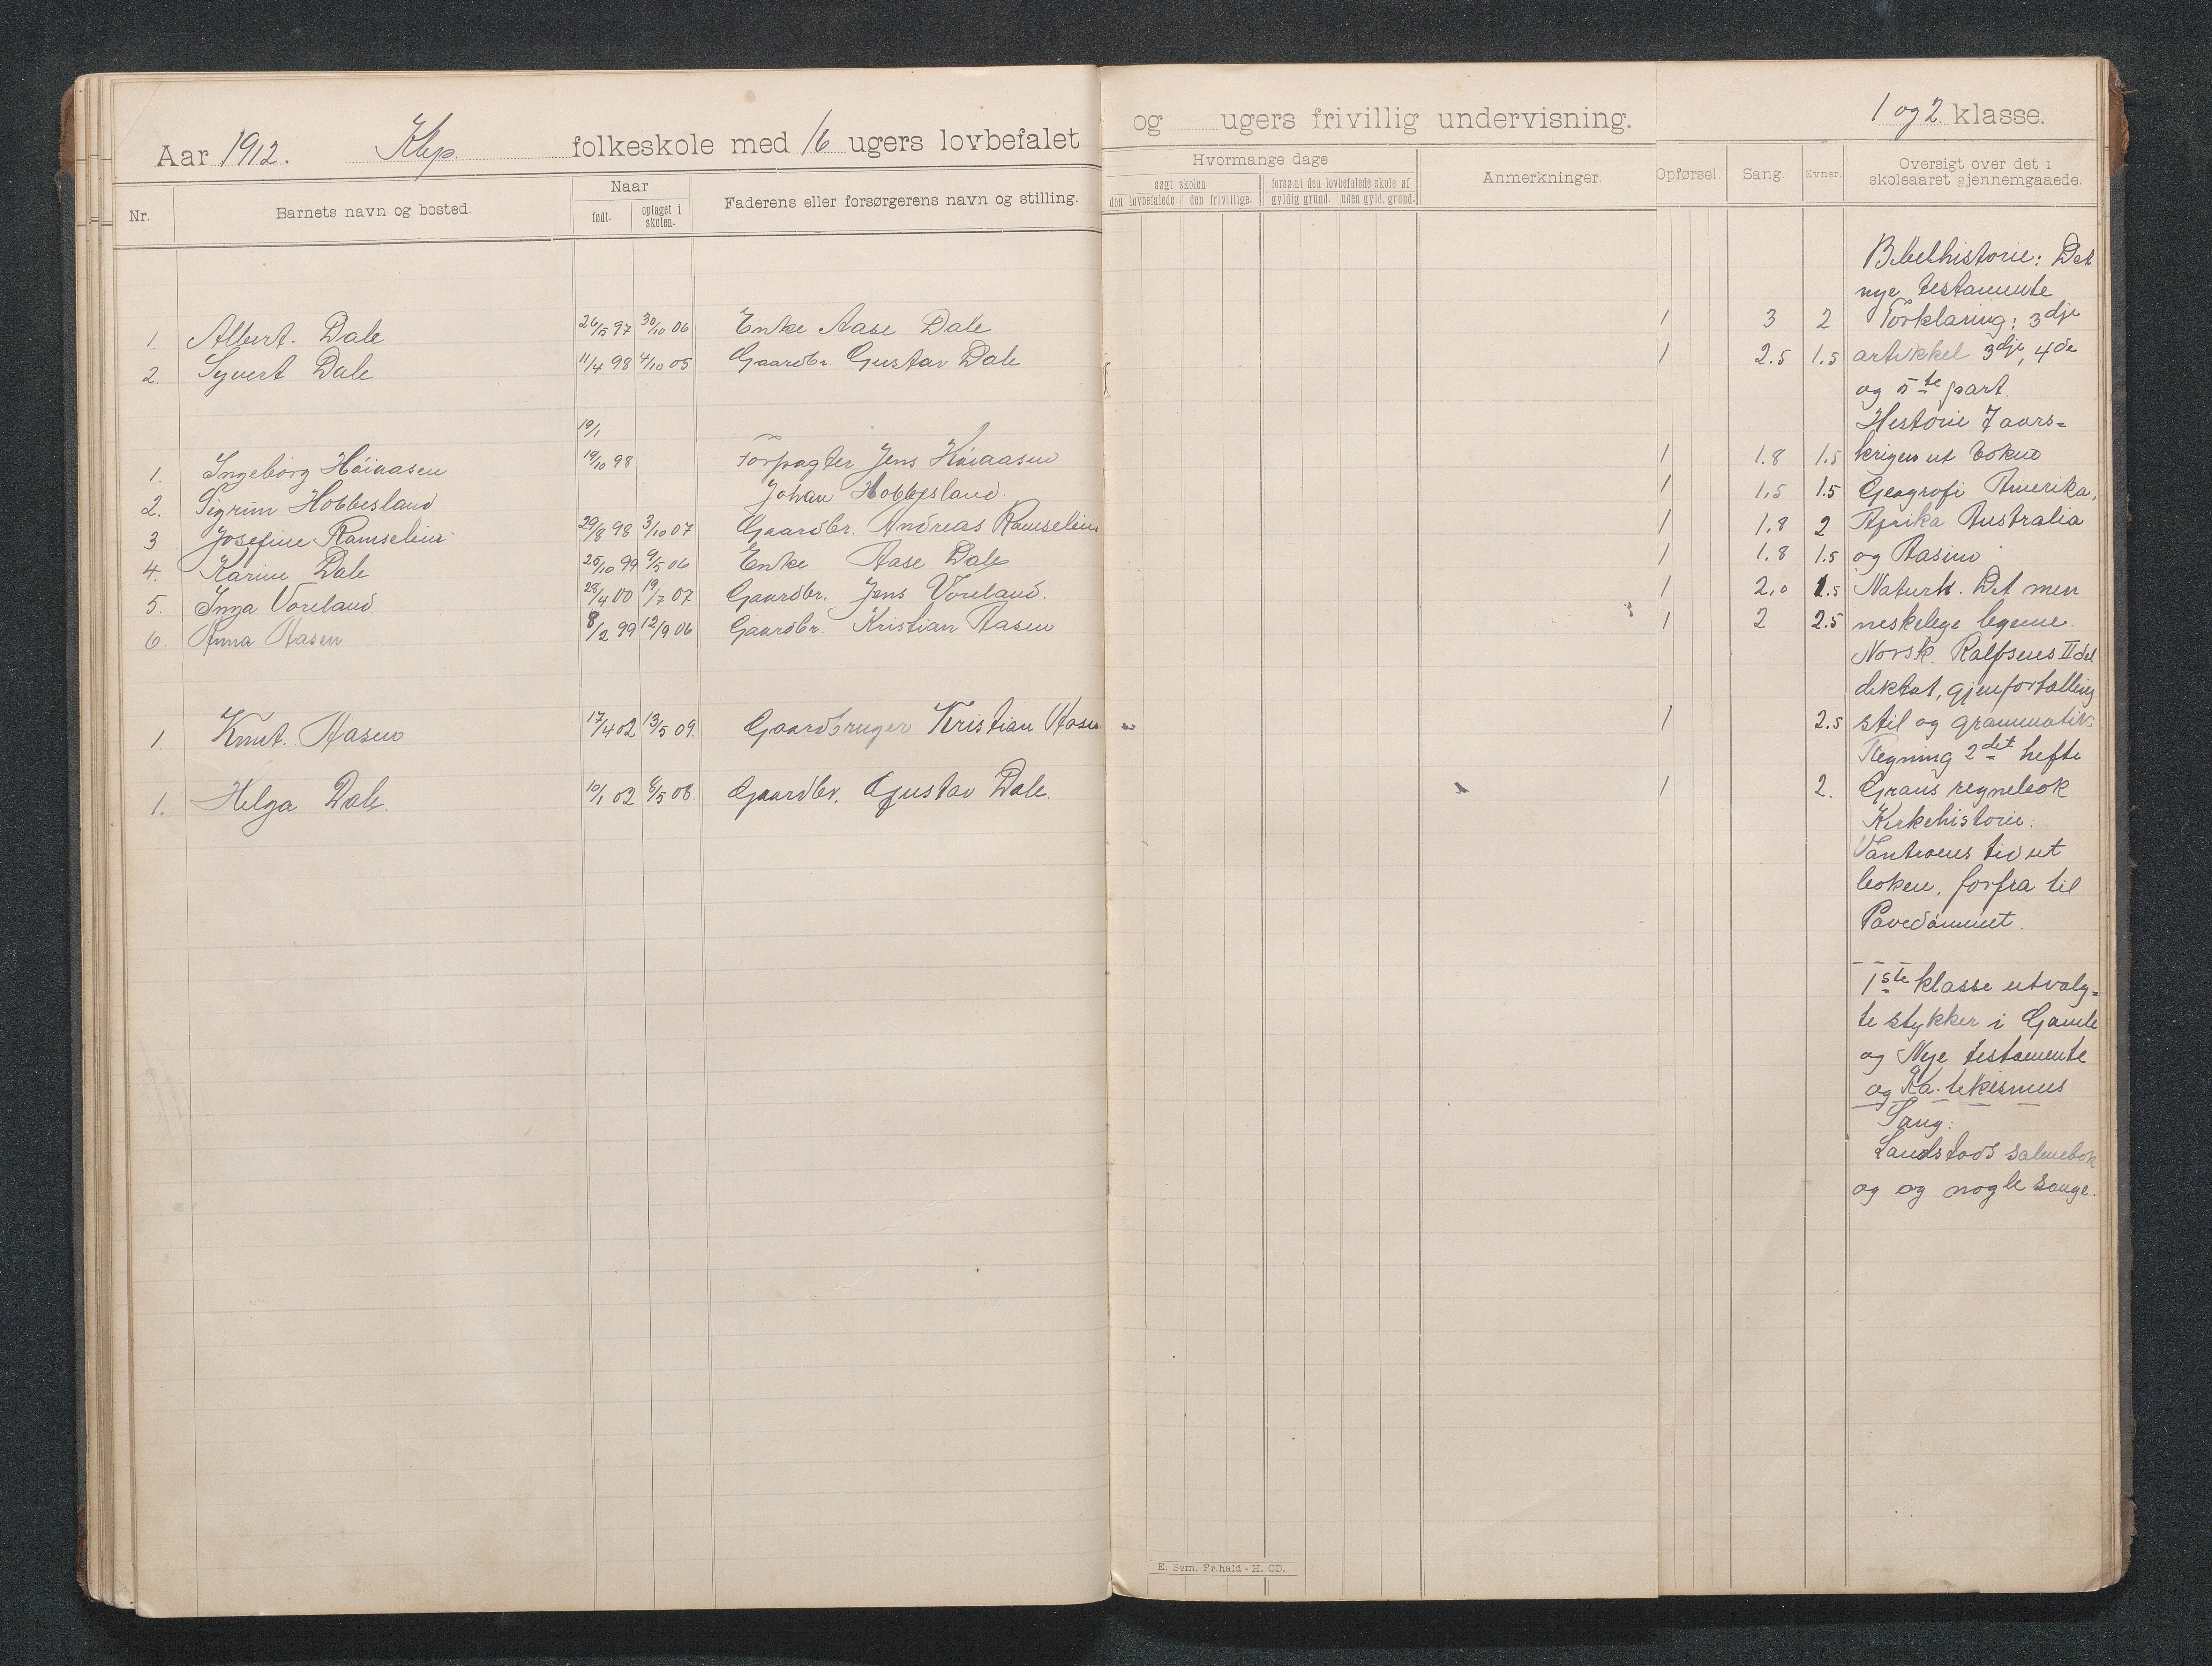 Aar 1912. Klep folkeskole med 16 ugers lovbefalet og ugers frivillig undervisning. 1 og 2 klasse.
Nr. Barnets navn og bosted. Naar født. optaget i skolen. Faderens eller forsørgerens navn og stilling.
Hvormange dage
søgt skolen forsømt den lovbefalede skole af
den lovbefalede. den frivillige. gyldig grund. uden gyld. grund.
Anmerkninger. Opførsel. Sang. Evner. Oversigt over det i skoleaaret gjennemgaaede.
1. Albert. Dale 26/5 97 30/10 06 Enke Aase Dale 1 3 2
2. Syvert Dale 11/4 98 4/10 05 Gaardbr. Gustav Dale 1 2.5 1.5
19/1
1. Ingeborg Höiaasen 19/10 98 Forpagter Jens Höiaasen 1 1.8 1.5
2. Sigrun Hobbesland Johan Hobbesland. 1 1,5 1.5
3 Josefine Ramselien 29/8 98 3/10 07 Gaardbr. Andreas Ramselien 1 1,8 2
4. Karine Dale 25/10 99 9/5 06 Enke Aase Dale 1 1.8 1.5
5. Inga Voreland 28/4 00 19/7 07 Gaardbr. Jens Voreland. 1 2,0 1.5
6. Anna Aasen 8/2 99 12/9 06 Gaardbr. Kristian Aasen 1 2 2.5
1. Knut. Aasen 17/4 02 13/5 09. Gaardbruger Kristian Aasen 1 2.5
1. Helga Dale. 10/1 02 6/5 08. Gaardbr. Gustav Dale. 1 2.
Bibelhistorie: Det
nye testamente
Forklaring: 3dje
artikkel 3dje, 4de
og 5te part.
Historie 7 aars=
krigen ut boken
Geografi Amerika,
Afrika Australia
og Aasien
Naturk. Det men
neskelege legeme.
Norsk. Rolfsens II del
diktat, gjenfortælling
stil og grammatik
Regning 2det hefte
Graus regnebok
Kirkehistorie:
Vantroens tid ut
boken, forfra til
Pavedømmet.
1ste klasse utvalg=
te stykker i Gamle
og Nye testamente
og Ka-tekismus
Sang:
Landstads salmebok
og og nogle sange.
E. Sem. Fr.hald - H. OD.